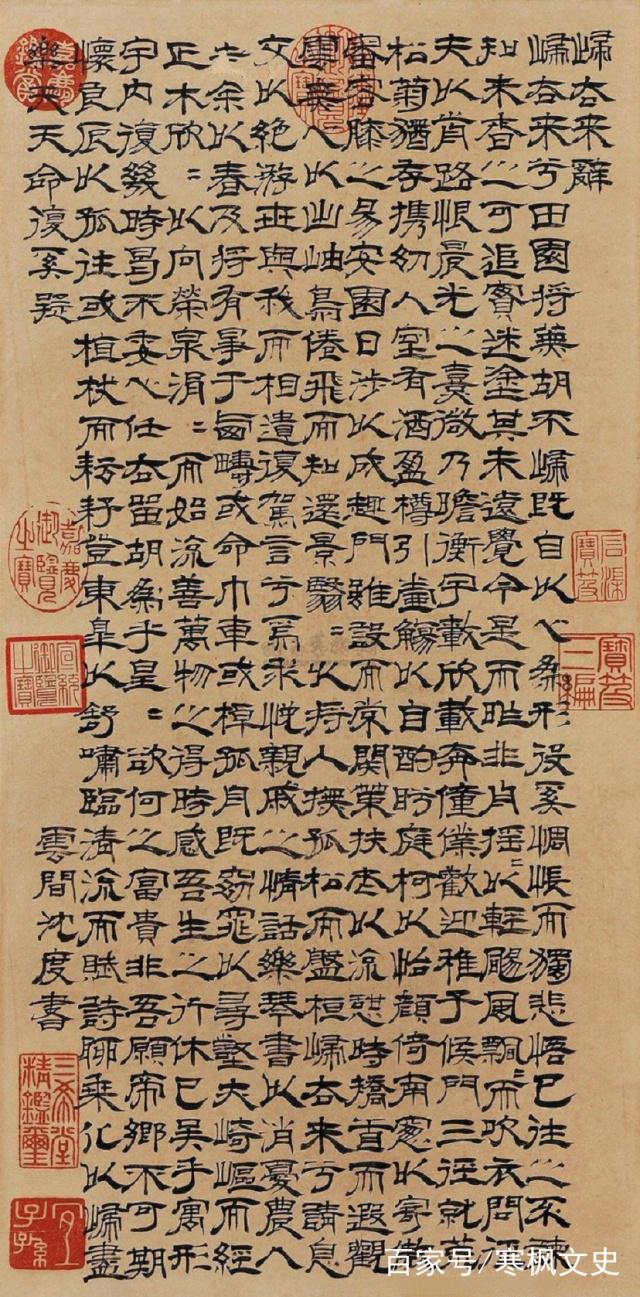 歸去來辭
歸去來兮田園將蕪胡不歸既自以心為形役奚惆悵而獨悲悟已往之不諫
知來者之可追實迷塗其未遠覺今是而昨非舟搖〻以輕颺風飄〻而吹衣問征
夫以前路恨晨光之熹微乃瞻衡宇載欣載奔僮僕歡迎稚子候門三徑就荒
松菊猶存携幼入室有酒盈樽引壺觴以自酌眄庭柯以怡顏倚南窻以寄傲
審容膝之易安園日涉以成趣門雖設而常關策扶老以流憩時矯首而遐觀
雲無心以出岫鳥倦飛而知還景翳〻以將入撫孤松而盤桓歸去來兮請息
交以絕游世與我而相遺復駕言兮焉求悅親戚之情話樂琴書以消憂農人
告余以春及將有事于西疇或命巾車或棹孤舟既窈窕以尋壑夫崎嶇而經
丘木欣〻以向榮泉涓〻而始流善萬物之得時感吾生之行休已矣乎寓形
宇內復幾時曷不委心任去留胡為乎皇〻欲何之富貴非吾願帝鄉不可期
懷良辰以孤往或植杖而耘耔登東皋以舒嘯臨清流而賦詩聊乘化以歸盡
樂夫天命復奚疑
雲間沈度書
嘉慶御覽之寶
宣統御覽之寶
三希堂精鑑璽
宜子孫
石渠寶笈
寶笈三編
百家号/寒枫文史